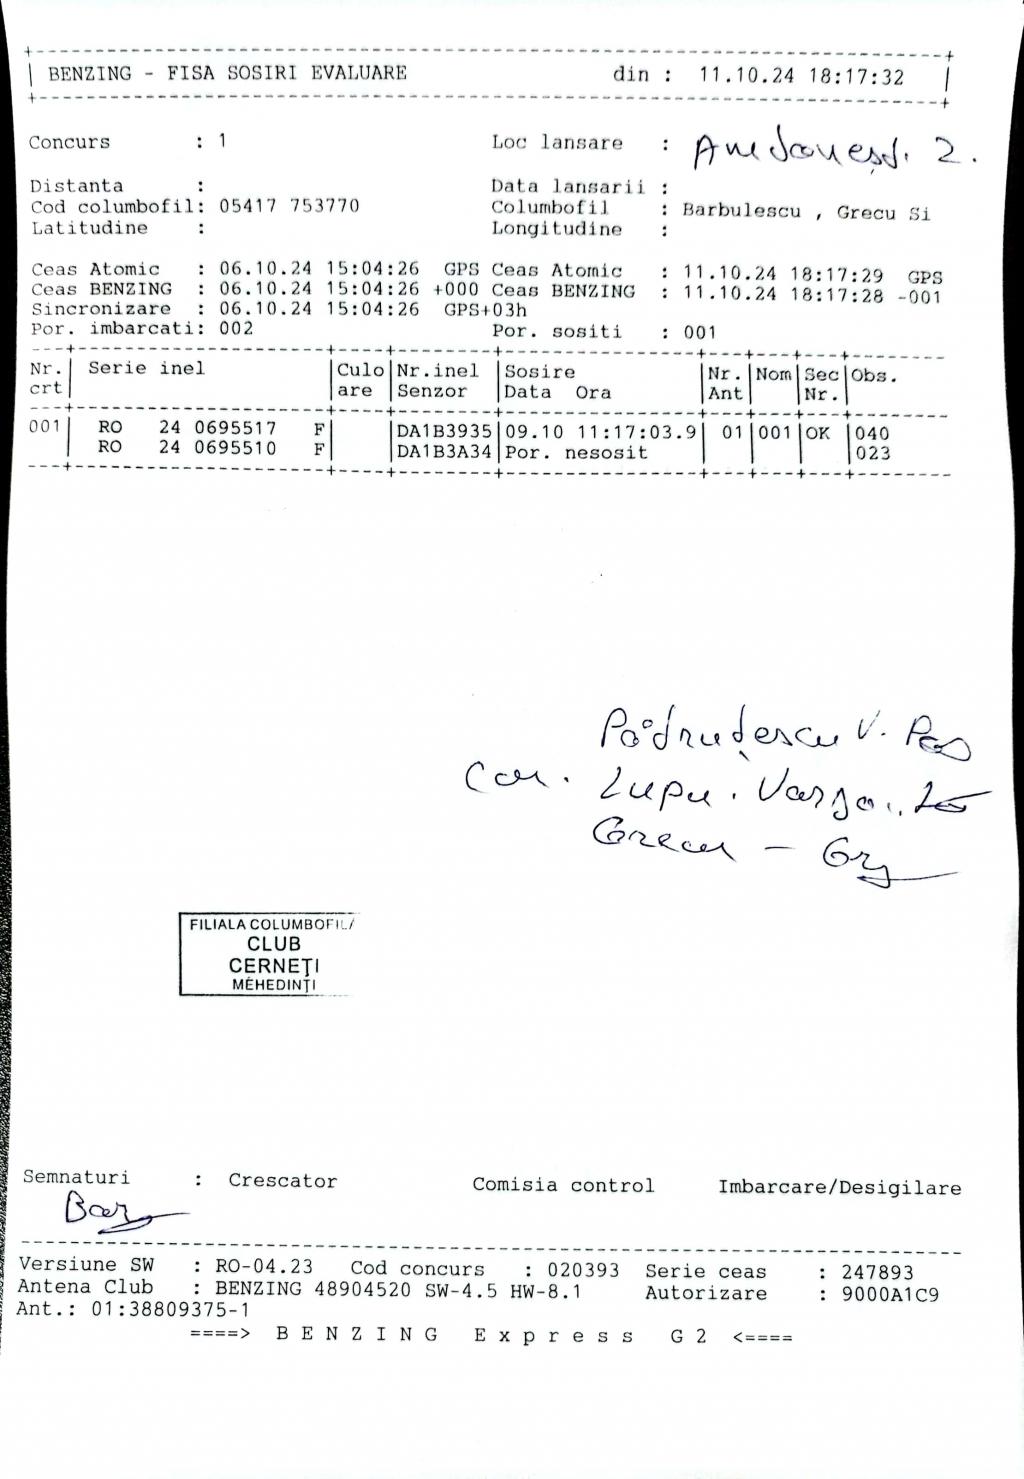 BENZING - FISA SOSIRI EVALUARE din : 11.10.24 18:17:32
Concurs : 1 Loc lansare : 2.
Distanta : Data lansarii :
Cod columbofil: 05417 753770 Columbofil : Barbulescu , Grecu Si
Latitudine : Longitudine :
Ceas Atomic : 06.10.24 15:04:26 GPS Ceas Atomic : 11.10.24 18:17:29 GPS
Ceas BENZING : 06.10.24 15:04:26 +000 Ceas BENZING : 11.10.24 18:17:28 -001
Sincronizare : 06.10.24 15:04:26 GPS+03h
Por. imbarcati: 002 Por. sositi : 001
Nr. Serie inel Culo Nr.inel Sosire Nr. Nom Sec Obs.
crt are Senzor Data Ora Ant Nr.
001 RO 24 0695517 F DA1B3935 09.10 11:17:03.9 01 001 OK 040
RO 24 0695510 F DA1B3A34 Por. nesosit 023
Pădruțescu V.
Lupu. Varga
Grecu –
FILIALA COLUMBOFIL
CLUB
CERNEŢI
MEHEDINŢI
Semnaturi : Crescator Comisia control Imbarcare/Desigilare
Versiune SW : RO-04.23 Cod concurs : 020393 Serie ceas : 247893
Antena Club : BENZING 48904520 SW-4.5 HW-8.1 Autorizare : 9000A1C9
Ant.: 01:38809375-1
====> B E N Z I N G E x p r e s s G 2 <====